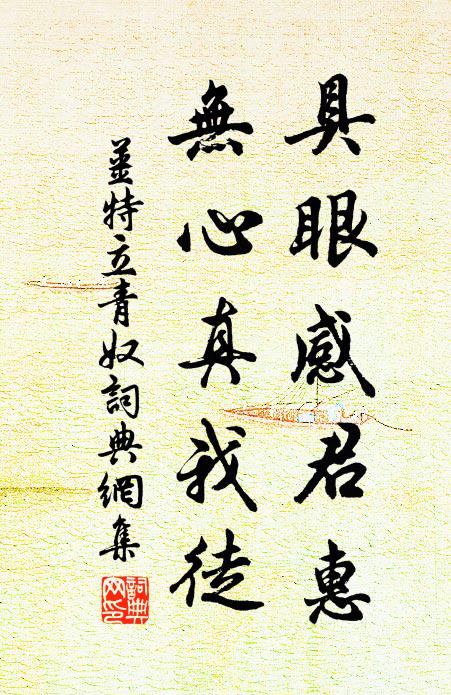 具眼感君惠
無心真我徒
姜特立青奴詞典網集
詞典網印